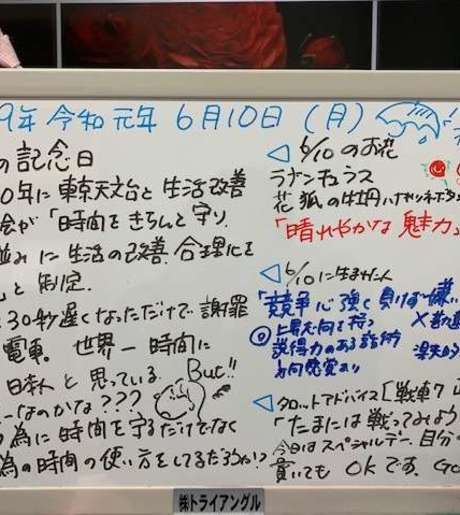 9年 令和元年 6月10日 (月)
の記念日
0年に東京天文台と生活改善
会が「時間をきちんと守り
並みに生活の改善.合理化を
と制定.
30秒遅くなっただけで謝罪
電車. 世界一時間に
日本人と思っている. But!!
なのかな???
為に時間を守るだけでなく
為の時間の使い方をしてるだろうか?
◁ 6/10のお花
ラナンキュラス
花狐の牡丹
「晴れやかな魅力」
◁ 6/10に生まれた人
「競争心強く負けず嫌い
上昇志向を持つ
説得力のある話術
方向感覚あり
◁ タロットアドバイス[戦車7 正
「たまには戦ってみよう
今日はスペシャルデー.自分の
貫いても OKです. Go
㈱トライアングル